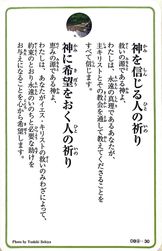 神を信じる人の祈り
救いの源である神よ、
わたしは、永遠の真理であるあなたが、
主キリストとその教会を通して教えてくださることを
すべて信じます。
神に希望をおく人の祈り
救いの源である神よ、
わたしは、あなたがイエス・キリストの救いのみわざによって、
約束どおり永遠のいのちと必要な助けを
お与えになることを心から希望します。
Photo by Yoshiki Sekiya